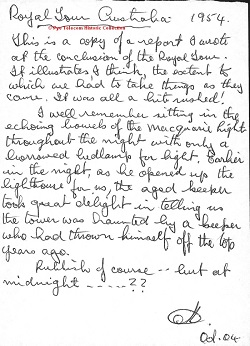 Royal Tour Australia 1954.
© Nye Telecom Historic Collection
This is a copy of a report I wrote
at the conclusion of the Royal Tour.
It illustrates I think, the extent to
which we had to take things as they
came. It was all a bit rushed!
I well remember sitting in the
echoing bowels of the Macquarie Light
throughout the night with only a
borrowed headlamp for light. Earlier
in the night, as he opened up the
lighthouse for us, the aged keeper
took great delight in telling us
the tower was haunted by a keeper
who had thrown himself off the top
years ago.
Rubbish of course -- but at
midnight ----- ??
Oct. 04